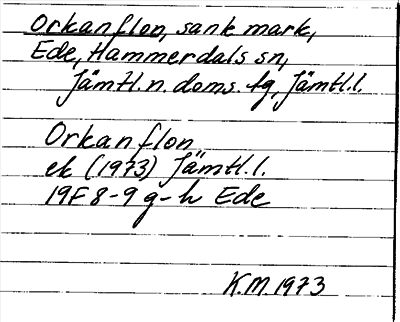 Orkanflon, sank mark,
Ede, Hammerdals sn,
Jämtl.n.doms.fg, Jämtl.l.
Orkanflon
ek (1973) Jämtl.l.
19F 8-9 g-h Ede
K.M. 1973